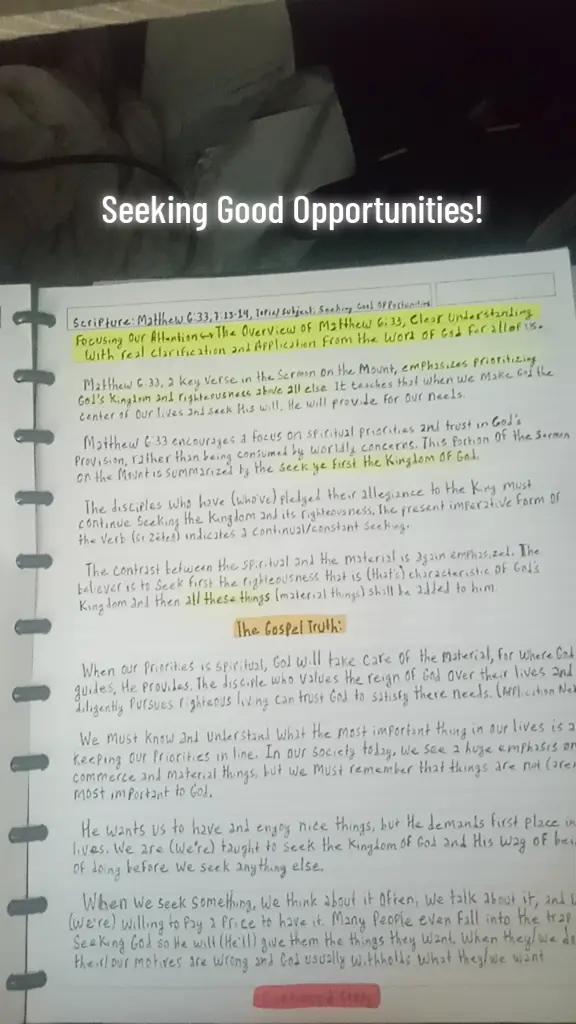 Seeking Good Opportunities!
Scripture: Matthew 6:33, 7:13-14, Topic/Subject: Seeking Good Opportunities
Focusing Our Attention → The Overview of Matthew 6:33, Clear Understanding
With real Clarification and Application From the Word of God For all of us.
Matthew 6:33, a key verse in the Sermon on the Mount, emphasizes prioritizing
God's Kingdom and righteousness above all else. It teaches that when we make God the
center of our lives and seek His will, He will provide for our needs.
Matthew 6:33 encourages a focus on spiritual priorities and trust in God's
Provision, rather than being consumed by worldly concerns. This Portion of the Sermon
on the Mount is summarized by the seek ye first the Kingdom of God.
The disciples who have (who've) pledged their allegiance to the King must
continue seeking the Kingdom and its righteousness. The present imperative form of
the verb (Gr. Zeteo) indicates a continual/constant seeking.
The contrast between the spiritual and the material is again emphasized. The
believer is to seek first the righteousness that is (that's) characteristic of God's
Kingdom and then all these things (material things) shall be added to him.
The Gospel Truth:
When our Priorities is spiritual, God will take care of the material, for where God
guides, He provides. The disciple who values the reign of God over their lives and
diligently pursues righteous living can trust God to satisfy there needs. (Application
We Must Know and Understand What the most important thing in our lives is a
Keeping our Priorities in line. In our society today, we see a huge emphasis on
commerce and material things, but we must remember that things are not (aren
most important to God.
He wants us to have and enjoy nice things, but He demands first place in
lives. We are (We're) taught to seek the Kingdom of God and His way of bei
of doing before we seek anything else.
When we seek something, we think about it often, we talk about it, and
(we're) willing to pay a price to have it. Many people even fall into the trap
Seeking God so He will (He'll) give them the things they want. When they/we do
their/our motives are wrong and God usually withholds what they/we want